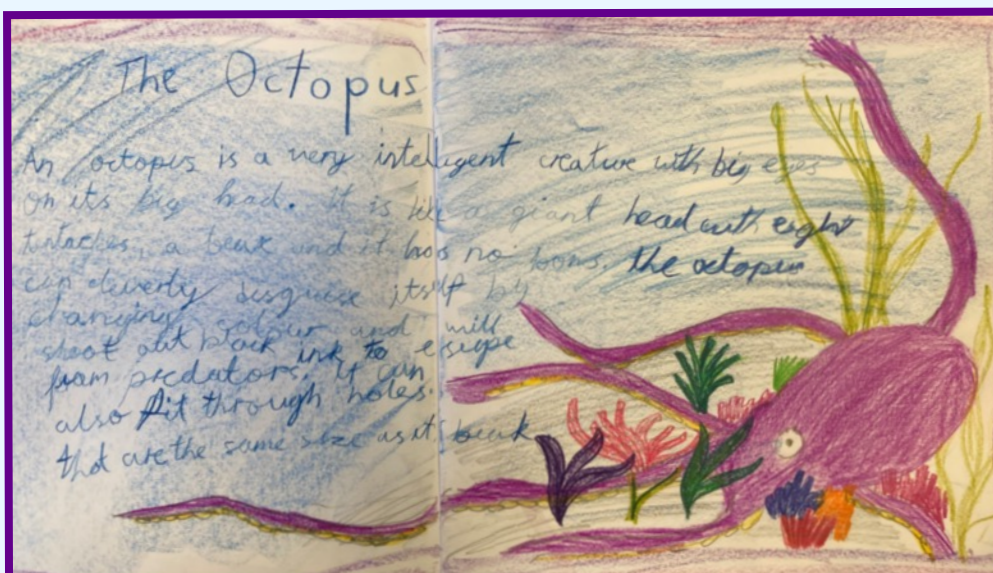 The Octopus
An octopus is a very intelligent creature with big eyes
on its big head. It is like a giant head with eight
tentacles, a beak and it has no bones. the octopus
can cleverly disguise itself by
changing colour and will
shoot out black ink to escape
from predators. It can
also fit through holes
that are the same size as its beak